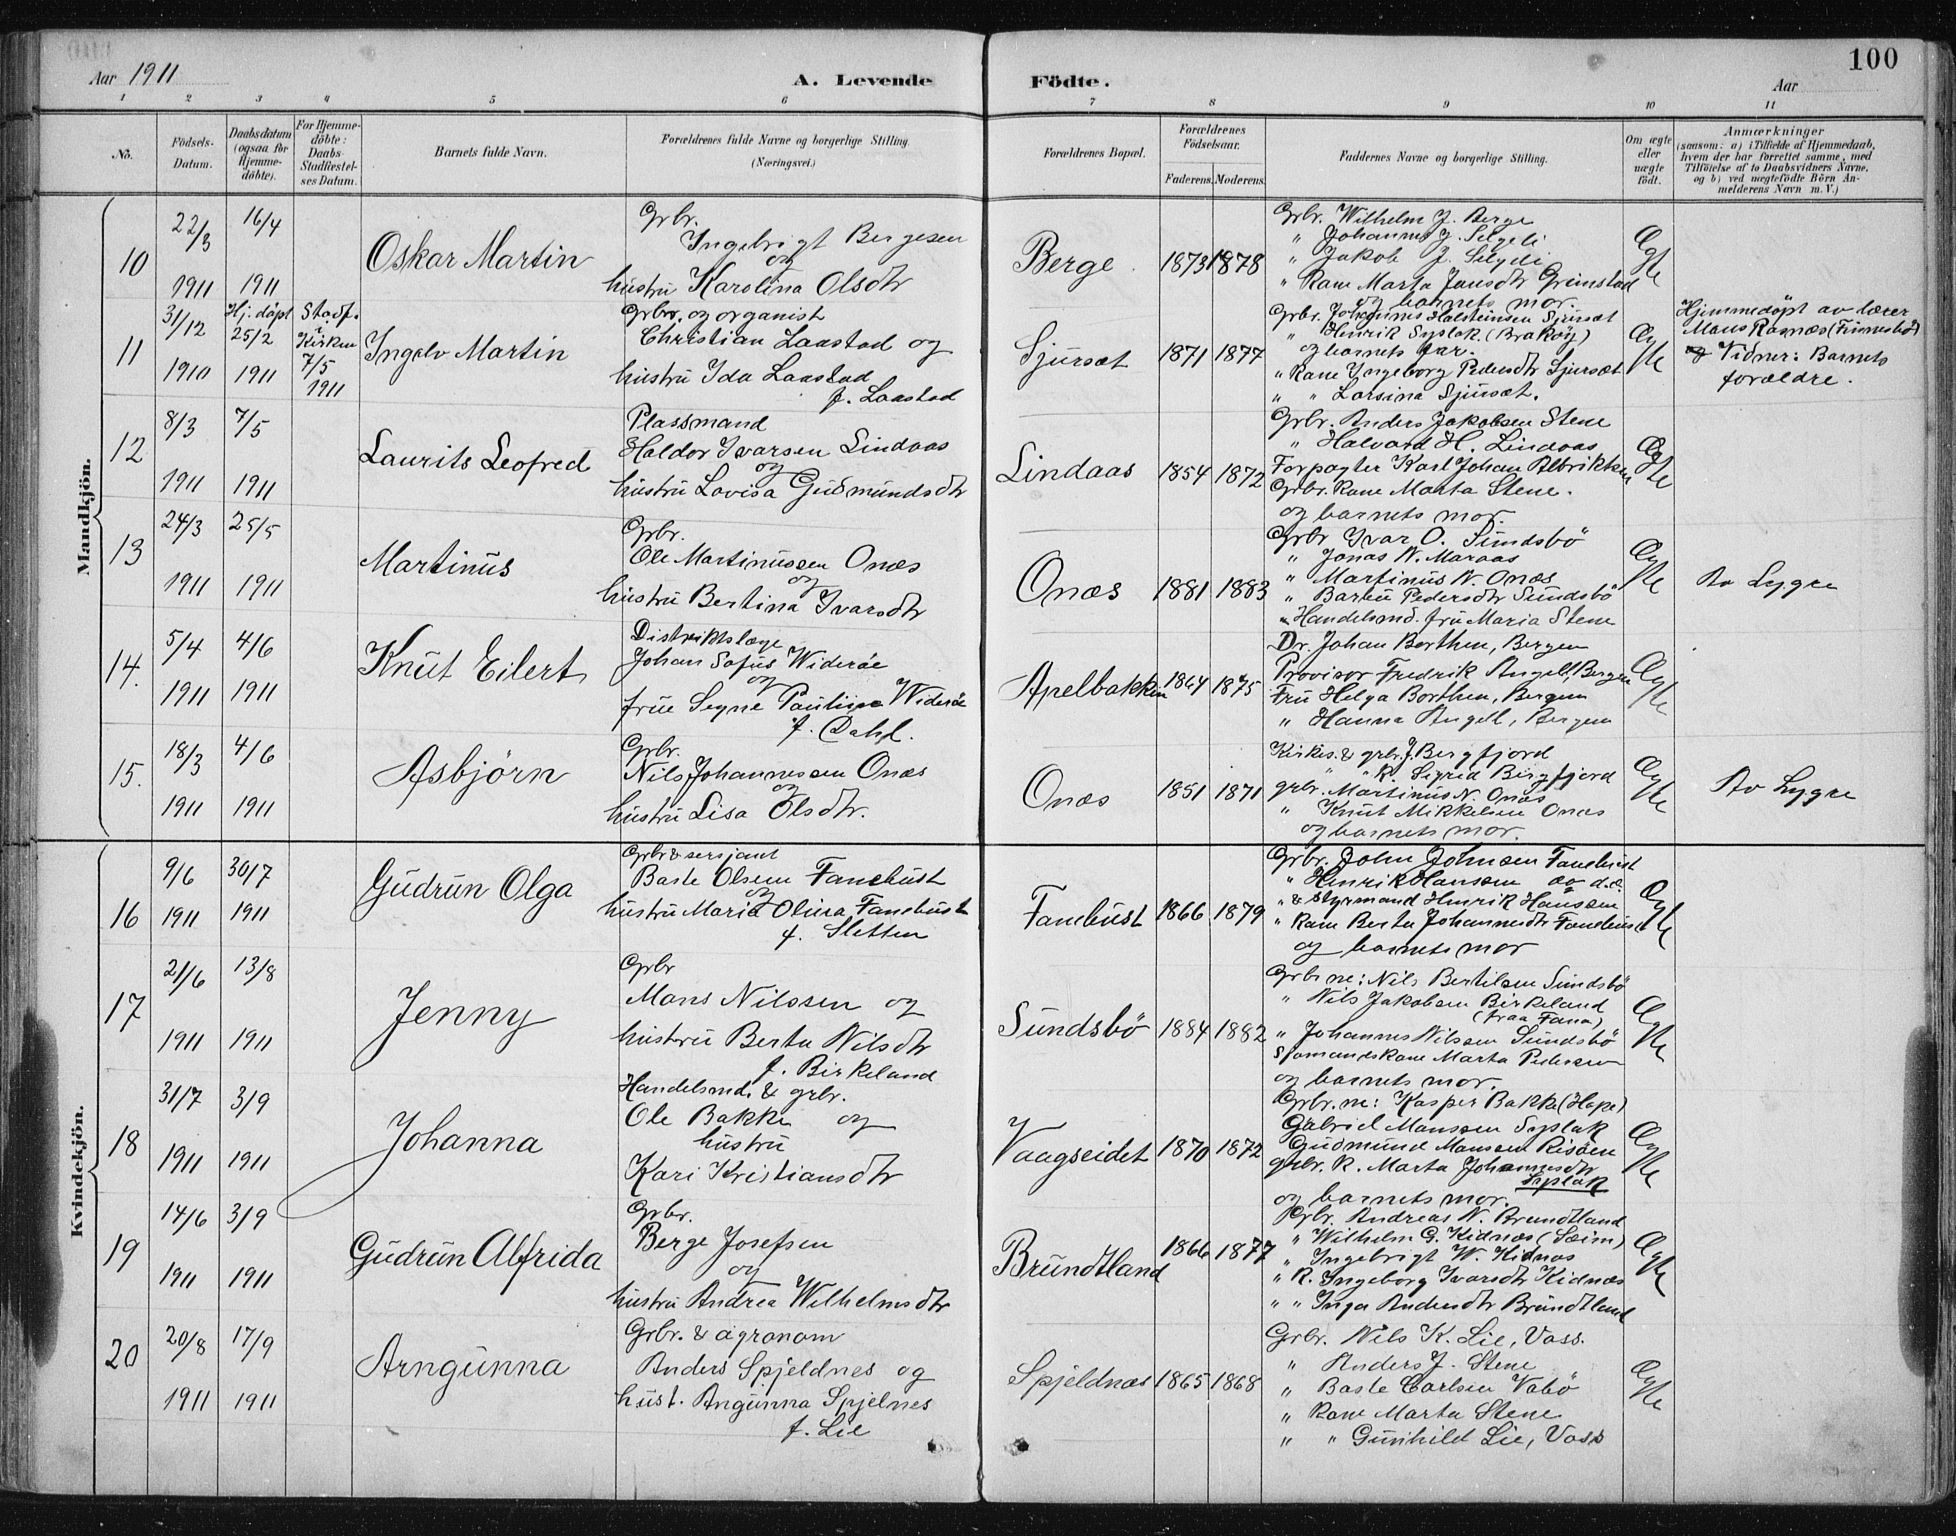 100
Aar 1911
A. Levende Födte.
Aar
1 2 3 4 5 6 7 8 9 10 11
No.
Födsels-Datum.
Daabsdatum (ogsaa for Hjemme-döbte).
For Hjemme-döbte: Daabs-Stadfæstel-ses Datum.
Barnets fulde Navn.
Forældrenes fulde Navne og borgerlige Stilling. (Næringsvei.)
Forældrenes Bopæl.
Forældrenes Födselsaar.
Faderens. Moderens.
Faddernes Navne og borgerlige Stilling.
Om ægte eller uægte födt.
Anmærkninger
(saasom: a) i Tilfælde af Hjemmedaab, hvem der har forrettet samme, med Tilföielse af to Daabsvidners Navne, og b) ved uægtefödte Börn An-melderens Navn m. V.)
Mandkjön.
10
22/3 1911
16/4 1911
Oskar Martin
Grbr.
Ingebrigt Bergesen
og
hustru Karolina Olsdtr
Berge
1873 1878
Grbr. Wilhelm J. Berge
" Johannes J. Selgeli
" Jakob J. Selgeli
" Kane Marta Jansdtr Grimstad
og barnets mor.
Ægte
11
31/12 1910
Hj. døpt 25/2 1911
Stadf. i Kirken 7/5 1911
Ingolv Martin
Grbr. og organist
Christian Laastad og
hustru Ida Laastad
f. Laastad
Sjursæt
1871 1877
Grbr. Johannes Halsteinsen Sjursæt
" Henrik Syslak (Brakøy)
og barnets far.
" Kane Ingeborg Pedersdtr Sjursæt
" " Larsina Sjursæt.
Ægte
Hjemmedøpt av lærer
Mans Rasnæs (Finnesbö)
Vidner: Barnets
forældre.
12
8/3 1911
7/5 1911
Laurits Leofred
Plassmand
Haldor Ivarsen Lindaas
og
hustru Lovisa Gudmundsdtr
Lindaas
1854 1872
Grbr. Anders Jakobsen Stene
" Halvard H. Lindaas
Forpagter Karl Johan Albriktsen
Grbr. Kane Marta Stene.
og barnets mor.
Ægte
13
24/3 1911
25/5 1911
Martinus
Grbr.
Ole Martinussen Onæs
og
hustru Bertina Ivarsdtr
Onæs
1881 1883
Grbr Ivar O. Sundsbö
" Jonas N. Maraas
" Martinus N. Onæs
" Barbu Pedersdtr Sundsbö
" Handelsmd. frü Maria Stene
Ægte
Av Lygre
14.
5/4 1911
4/6 1911
Knut Eilert
Distriktslæge
Johan Sofus Widerøe
og
frue Segne Pauline Widerøe
f. Dahl.
Apelbakken
1864 1875
Dr. Johan Borthen, Bergen
Provisor Fredrik Angell, Bergen
Fru Helga Borthen, Bergen
" Hanna Angell, Bergen
Ægte
15.
18/3 1911
4/6 1911
Asbjörn
Grbr.
Nils Johannessen Onæs
og
hustru Lisa Olsdtr.
Onæs
1851 1871
Kirkes. & grbr. J. Bergfjord
" " K. Sigrid Bergfjord
grbr. Martinus N. Onæs
" Knut Mikkelsen Onæs
og barnets mor.
Ægte
Av Lygre
Kvindekjön.
16
9/6 1911
30/7 1911
Gudrun Olga
Grbr & sersjant
Baste Olsen Fanebust
og
hustru Maria Olina Fanebust
f. Sletten
Fanebust
1866 1879
Grbr. John Johnsen Fanebust
" Henrik Hansen av d.e.
" & styrmand Henrik Hansen
" Kane Berta Johannesdtr Fanebust
og barnets mor
Ægte
17
21/6 1911
13/8 1911
Jenny
Grbr
Mons Nilssen og
hustru Berta Nilsdtr
f. Birkeland
Sundsbö
1884 1882
Grbr ne: Nils Bertilsen Sundsbö
" Nils Jakobsen Birkeland
(fraa Fana)
" Johannes Nilssen Sundsbö
Sjømandskane Marta Pedersen
og barnets mor.
Ægte
18
31/7 1911
3/9 1911
Johanna
Handelsmd. & grbr.
Ole Bakke og
hustru
Kari Kristiansdtr
Vaagseidet
1870 1872
Grbr. ne: Kasper Bakke (Hope)
Gabriel Monssen Syslak
Gudmund Monsen Risöen
grbr. K. Marta Johannesdtr
Syslak
og barnets mor.
Ægte
19
14/6 1911
3/9 1911
Gudrun Alfrida
Grbr.
Berge Josefsen
og
hustru Andrea Wilhelmsdtr
Brundtland
1866 1877
Grbr. Andreas N. Brundtland
" Wilhelm G. Kidnæs (Sæim)
" Ingebrigt W. Kidnæs
" K. Ingeborg Ivarsdtr Kidnæs
" " Inga Andersdtr Brundtland
Ægte
20
20/8 1911
17/9 1911
Arngunna
Grbr. & agronom
Anders Spjeldnes og
hust. Angunna Spjelnes
f. Lie
Spjeldnæs
1865 1868
Grbr. Nils K. Lie, Voss.
" Anders J. Stene
" Baste Carlsen Vabö
" Kane Marta Stene
" " Gunhild Lie, Voss
Ægte